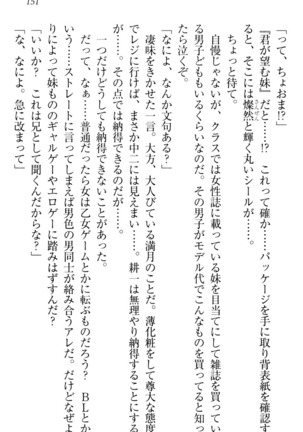 151
「って、ちょおま!?」
『君が望む妹』だと……!?　これって確か……パッケージを手に取り背表紙を確認す
ると、そこには燦然と輝く丸いシールが……。
ちょっと待て。
自慢じゃないが、クラスでは女性誌に載っている妹を目当てにして雑誌を買ってい
る男子どももいるくらいなのだ。その男子がモデル代でこんなものを買ってると知っ
たら泣くぞ。
「なによ、なんか文句ある?」
凄味をきかせた一言。大方、大人びている満月のことだ。薄化粧をして尊大な態度
でレジに行けば、まさか中二には見えまい……。耕一は無理やり納得することにす
る。その点では納得できるのだが……。
一つだけどうしても納得できないことがあった。
だって、なぁ……普通だったら女は乙女ゲームとかに転ぶものだろう?　BLとか
いう……ストレートに言ってしまえば男色の男同士が絡み合うアレだ。だけどなぜよ
りによって妹もののギャルゲーやエロゲーに踏みはずすんだ?
「いいか?　これは兄として聞くんだからな?」
「な、なによ。急に改まって」